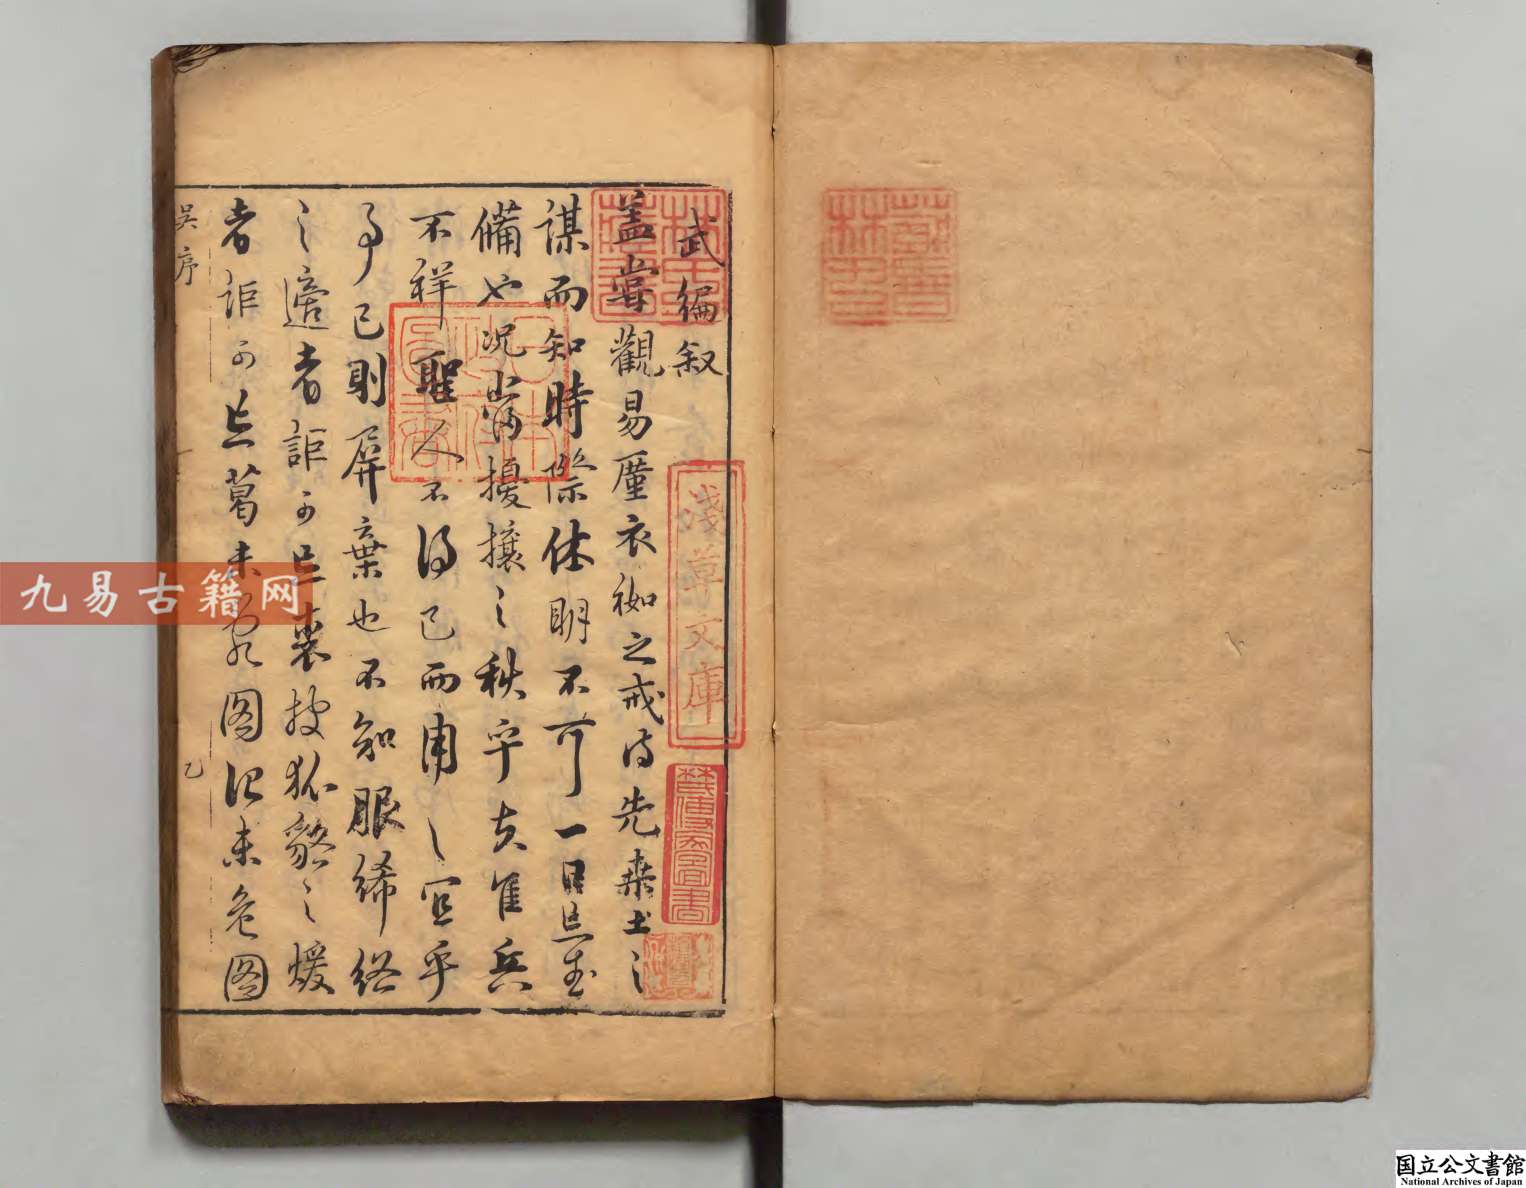 武編叙
蓋嘗觀易厪衣袽之戒詩先桑土之
謀而知時際休明不可一日忘武
備也況當擾攘之秋乎夫隹兵
不祥聖人不得已而用之宜乎
事已則屏棄也不知服絺綌
之適者詎可忘裘披狐貉之煖
者詎可忘葛未亂圖治未危圖
吳序
乙
淺草文庫
日本政府圖書
林氏藏書
九易古籍网
国立公文書館
National Archives of Japan